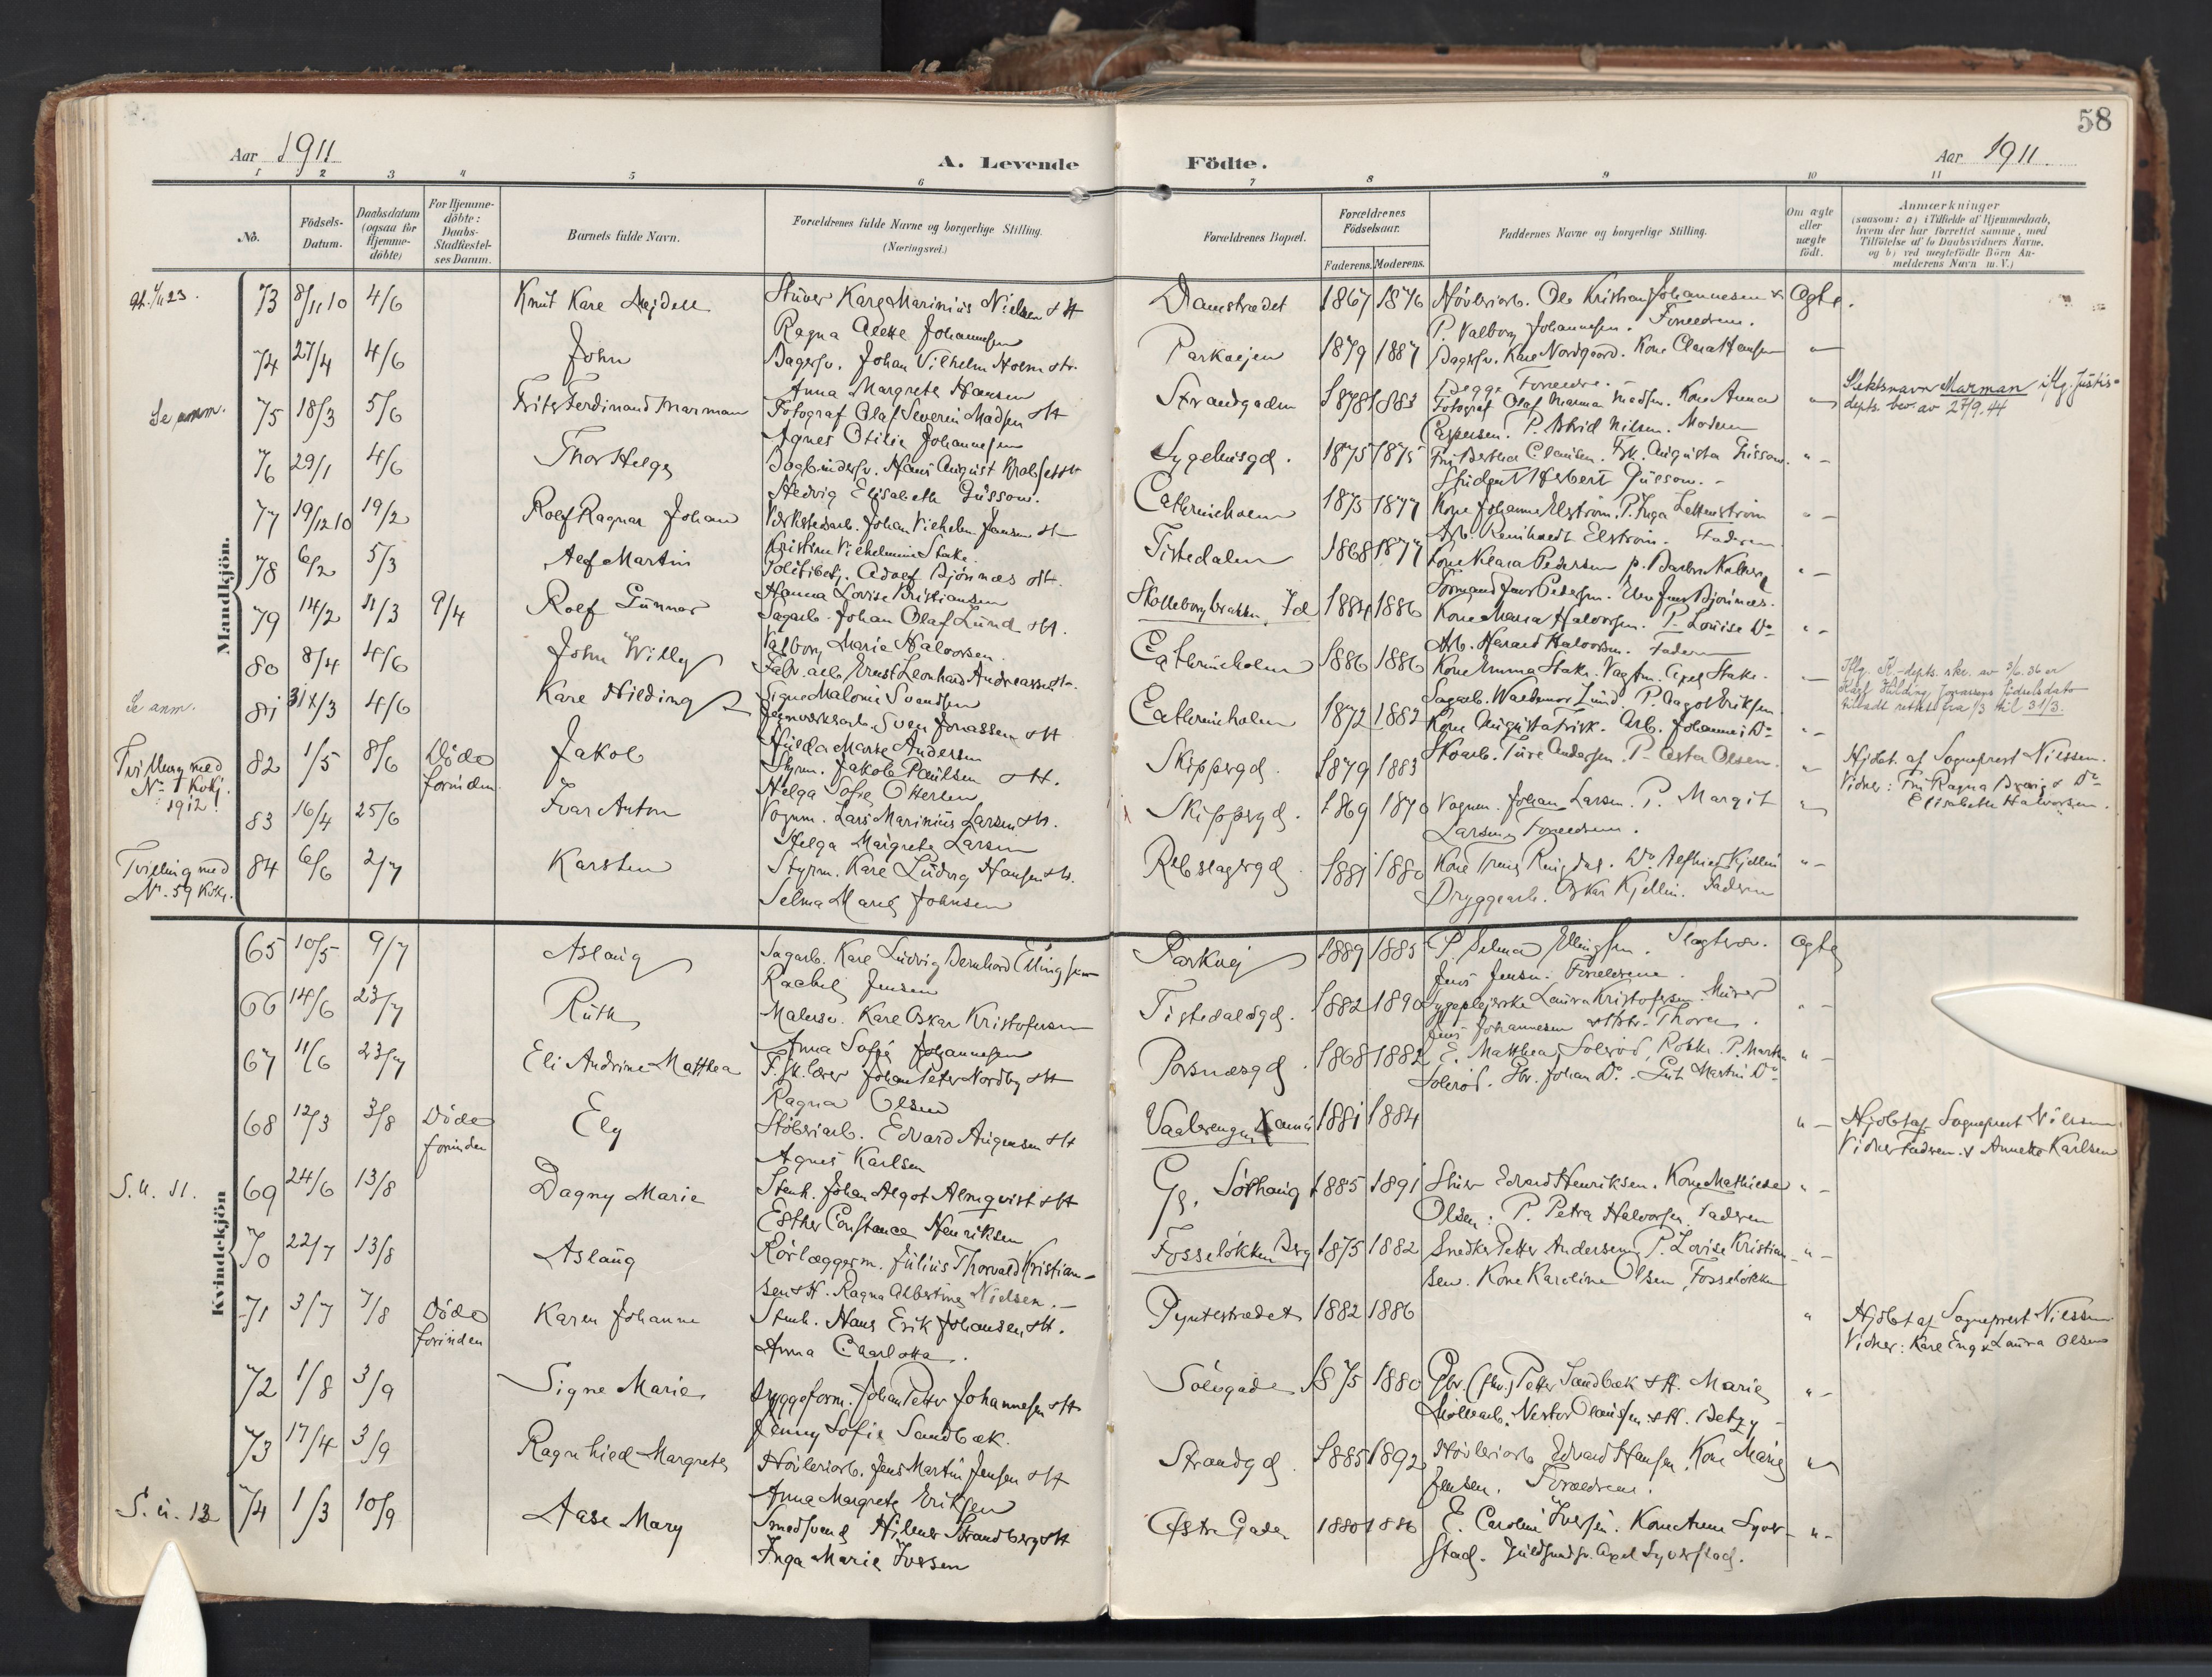 58
Aar 1911
A. Levende
Födte.
Aar 1911.
1 2 3 4 5 6 7 8 9 10 11
No.
Födsels-
Datum.
Daabsdatum
(ogsaa for
Hjemme-
döbte)
For Hjemme-
döbte:
Daabs-
Stadfæstel-
ses Datum.
Barnets fulde Navn.
Forældrenes fulde Navne og borgerlige Stilling.
(Næringsvei.)
Forældrenes Bopæl.
Forældrenes
Födselsaar.
Faderens. Moderens.
Faddernes Navne og borgerlige Stilling.
Om ægte
eller
uægte
födt.
Anmærkninger
(saasom: a) i Tilfælde af Hjemmedaab,
hvem der har forrettet samme, med
Tilföielse af to Daabsvidners Navne,
og b) ved uægtefödte Börn An-
melderens Navn m. V.)
Mandkjön.
73 8/11 10 4/6 Knut Kare
Karl Marinius Nielsen & H
Ragna Johannesen
Damstrædet 1867 1876 Hövleriarb. Ole Kristian Johannesen &
P. Valborg Johannesen. Forældrene.
Ægte.
74 27/4 4/6 John
Bagersv. Johan Vilhelm Holm & H.
Anna Margrete Hansen
Parkveien 1879 1887 Bagersv. Kare Nordgaard. Kone Clara Hansen
Begge Forældre.
Se anm. 75 18/3 5/6 Fritz Ferdinand Marman
Fotograf Olaf Severin Madsen & H
Agnes Otilie Johannesen
Strandgaden 1878 1883 Fotograf Olaf Madsen. Kone Anna
Espersen. P. Astrid Nilsen. Moderen
Slektsnavn Marman iflg. Justis-
depts. bev. av 27/9.44
76 29/1 4/6 Thor Helge
Bogbindersv. Hans August & H
Hedvig Elisabeth
Sygehusgd. 1875 1875
Student Herbert
77 19/12 10 19/2 Rolf Ragnar Johan
Verkstedsarb. Johan Vilhelm Jansen & H
Kristine Vilhelmine Stake
Cathrineholm 1875 1877 Kone Johanne Elström. P. Inga
Arb. Reinhardt Elström. Faderen
78 6/2 5/3 Alf Martin
Politibetj. Adolf Björnnæs & H.
Hanna Lovise Kristiansen
Tistedalen 1868 1877 Kone Klara Pedersen
Formand Pedersen. Björnnæs.
79 14/2 11/3 9/4 Rolf Gunnar
Sagarb. Johan Olaf Lund & H.
Valborg Marie Halvorsen
Id 1884 1886 Kone Maria Halvorsen. P. Louise Do
Arb. Harald Halvorsen. Faderen
80 8/4 4/6 John Willy
Fabr. arb. Ernst Leonhard Andreassen & H.
Signe Malomi Svendsen
Cathrineholm 1886 1886 Kone Emma Stake. Vagtm. Axel Stake.
Sagarb. Waldemar Lund. P. Dagot Eriksen
Se anm. 81 31/3 4/6 Kare Hilding
Sven Jonassen & H
Hulda Marie Andersen
Cathrineholm 1872 1882 Kone Augusta Arb. Johannes Do
Ture Andersen. P. Olsen.
Iflg. K.-depts. skr. av 3/6.36 er
Karl Hilding Jonassens födselsdato
tilladt rettet fra 1/3 til 31/3.
Tvilling med
No 1 Kvkj.
1912!
82 1/5 8/6 Döde
forinden Jakob
Styrm. Jakob Paulsen & H.
Helga Sofie Otterlen
Skippergd. 1879 1883
Hjdbt. af Sogneprest Nilssen.
Vidner: Fru Ragna & Do
Elisabeth Halvorsen.
83 16/4 25/6 Ivar Anton
Vognm. Lars Marinius Larsen & H.
Helga Margrete Larsen
Skippergd. 1869 1870 Vognm. Johan Larsen. P. Margit
Larsen. Forældrene.
Tvilling med
No. 59 Kvkj.
84 6/6 2/7 Karsten
Styrm. Kare Ludvig Hansen & H.
Selma Marie Johnsen
Rebslagergd. 1881 1880 Kone Ringdal. Do Kjellin
Bryggearb. Oskar Kjellin. Faderen
Kvindekjön
65 10/5 9/7 Aslaug
Sagarb. Karl Ludvig Bernhard Ellingsen
Rachel Jensen
Parkvej 1889 1885 P. Selma Ellingsen. Slagtersv.
Jens Jensen. Forældrene.
Ægte
66 14/6 23/7 Ruth
Malersv. Kare Oskar Kristofersen
Anna Sofie Johannesen
Tistedalsgd. 1882 1890 Sygeplejerske Laura Kristofersen. Murer
Jens Johannesen
67 11/6 23/7 Eli Andrine Matthea
F. sk. lærer Johan Peter Nordby & H
Ragna Olsen
Porsnæsgd. 1868 1882 E. Matthea Solerød, Rokke. P. Martha
Solerød. Gbr. Johan Do. Gut Martin Do
68 12/3 3/8 Döde
forinden Ely
Stöberiarb. Edvard Augensen & H
Agnes Karlsen
Vaalerengen 1881 1884
Hjdbt af Sogneprest Nilssen
Vidner Faderen & Annette Karlsen
S. u. 11. 69 24/6 13/8 Dagny Marie
Stenh. Johan Algot Almqvist & H
Esther Constance Henriksen
Gr. Sörhaug 1885 1891 Edvard Henriksen. Kone Mathilde
Olsen: P. Petra Halvorsen. Faderen
70 22/7 13/8 Aslaug
Rörlæggerm. Julius Thorvald Kristian-
sen & H. Ragna Albertine Nielsen.
Fosselökken Berg 1875 1882 Snedker Petter Andersen, P. Lovise Kristian-
sen. Kone Karoline Olsen, Fosselökken
71 3/7 7/8 Döde
forinden Karen Johanne
Stenh. Hans Erik Johansen & H.
Anna Charlotta.
Pyntestrædet 1882 1886
Hjdbt af Sogneprest Nilssen
Vidner: Kare Eng & Laura Olsen
72 1/8 3/9 Signe Marie
Byggeform. Johan Petter Johannesen & H
Jenny Sofie Sandbæk.
Solvgade 1875 1880 Gbr. Petter Sandbæk & H. Marie
Möllearb. Nestor Olaussen & H. Betzy
73 17/4 3/9 Ragnhild Margrete
Hövleriarb. Jens Martin Jensen & H
Anna Margrete Eriksen
Strandgd. 1885 1892 Hövleriarb. Edvard Hansen. Kone Marie
Jensen. Forældrene.
S. u. 12 74 1/3 10/9 Aase Mary
Smedsvend Hilmer Strandberg & H
Inga Marie Iversen
Östre Gade 1880 1886 E. Caroline Iversen. Kone Anne Syver-
stad. Guldsmedsv. Axel Syverstad.